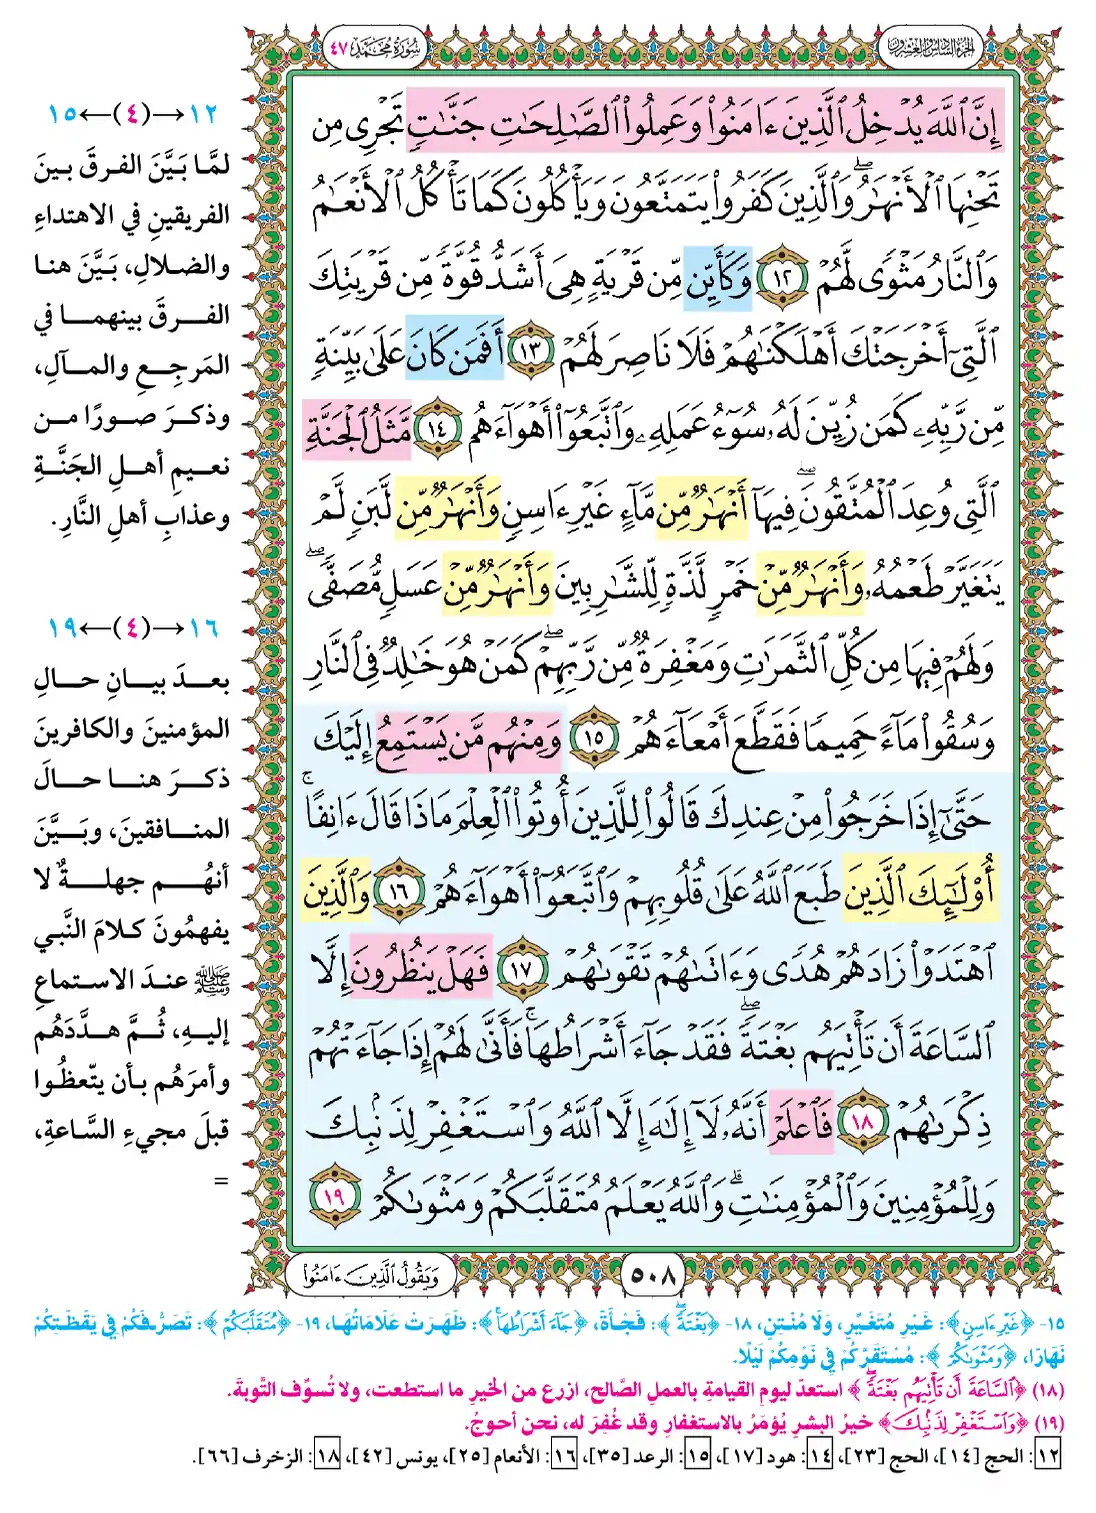 الجزء السادس والعشرون
سورة محمد ٤٧
إِنَّ ٱللَّهَ يُدۡخِلُ ٱلَّذِينَ ءَامَنُواْ وَعَمِلُواْ ٱلصَّٰلِحَٰتِ جَنَّٰتٖ تَجۡرِي مِن
تَحۡتِهَا ٱلۡأَنۡهَٰرُۖ وَٱلَّذِينَ كَفَرُواْ يَتَمَتَّعُونَ وَيَأۡكُلُونَ كَمَا تَأۡكُلُ ٱلۡأَنۡعَٰمُ
وَٱلنَّارُ مَثۡوٗى لَّهُمۡ ١٢ وَكَأَيِّن مِّن قَرۡيَةٍ هِيَ أَشَدُّ قُوَّةٗ مِّن قَرۡيَتِكَ
ٱلَّتِيٓ أَخۡرَجَتۡكَ أَهۡلَكۡنَٰهُمۡ فَلَا نَاصِرَ لَهُمۡ ١٣ أَفَمَن كَانَ عَلَىٰ بَيِّنَةٖ
مِّن رَّبِّهِۦ كَمَن زُيِّنَ لَهُۥ سُوٓءُ عَمَلِهِۦ وَٱتَّبَعُوٓاْ أَهۡوَآءَهُم ١٤ مَّثَلُ ٱلۡجَنَّةِ
ٱلَّتِي وُعِدَ ٱلۡمُتَّقُونَۖ فِيهَآ أَنۡهَٰرٞ مِّن مَّآءٍ غَيۡرِ ءَاسِنٖ وَأَنۡهَٰرٞ مِّن لَّبَنٖ لَّمۡ
يَتَغَيَّرۡ طَعۡمُهُۥ وَأَنۡهَٰرٞ مِّنۡ خَمۡرٖ لَّذَّةٖ لِّلشَّٰرِبِينَ وَأَنۡهَٰرٞ مِّنۡ عَسَلٖ مُّصَفّٗىۖ
وَلَهُمۡ فِيهَا مِن كُلِّ ٱلثَّمَرَٰتِ وَمَغۡفِرَةٞ مِّن رَّبِّهِمۡۖ كَمَنۡ هُوَ خَٰلِدٞ فِي ٱلنَّارِ
وَسُقُواْ مَآءً حَمِيمٗا فَقَطَّعَ أَمۡعَآءَهُمۡ ١٥ وَمِنۡهُم مَّن يَسۡتَمِعُ إِلَيۡكَ
حَتَّىٰٓ إِذَا خَرَجُواْ مِنۡ عِندِكَ قَالُواْ لِلَّذِينَ أُوتُواْ ٱلۡعِلۡمَ مَاذَا قَالَ ءَانِفًاۚ
أُوْلَٰٓئِكَ ٱلَّذِينَ طَبَعَ ٱللَّهُ عَلَىٰ قُلُوبِهِمۡ وَٱتَّبَعُوٓاْ أَهۡوَآءَهُمۡ ١٦ وَٱلَّذِينَ
ٱهۡتَدَوۡاْ زَادَهُمۡ هُدٗى وَءَاتَىٰهُمۡ تَقۡوَىٰهُمۡ ١٧ فَهَلۡ يَنظُرُونَ إِلَّا
ٱلسَّاعَةَ أَن تَأۡتِيَهُم بَغۡتَةٗۖ فَقَدۡ جَآءَ أَشۡرَاطُهَاۚ فَأَنَّىٰ لَهُمۡ إِذَا جَآءَتۡهُمۡ
ذِكۡرَىٰهُمۡ ١٨ فَٱعۡلَمۡ أَنَّهُۥ لَآ إِلَٰهَ إِلَّا ٱللَّهُ وَٱسۡتَغۡفِرۡ لِذَنۢبِكَ
وَلِلۡمُؤۡمِنِينَ وَٱلۡمُؤۡمِنَٰتِۗ وَٱللَّهُ يَعۡلَمُ مُتَقَلَّبَكُمۡ وَمَثۡوَىٰكُمۡ ١٩
١٢→(٤)←١٥
لمَّا بَيَّنَ الفرقَ بينَ
الفريقينِ في الاهتداءِ
والضلالِ، بَيَّنَ هنا
الفرقَ بينهما في
المَرجِعِ والمـآلِ،
وذكرَ صورًا من
نعيمِ أهلِ الجَنَّةِ
وعذابِ أهلِ النَّارِ.
١٦→(٤)←١٩
بعدَ بيانِ حالِ
المؤمنينَ والكافرينَ
ذكرَ هنا حالَ
المنافقينَ، وبَيَّنَ
أنهُم جهلةٌ لا
يفهمُونَ كلامَ النَّبي
ﷺ عندَ الاستماعِ
إليهِ، ثُمَّ هدَّدَهُم
وأمرَهُم بأن يتّعظُوا
قبلَ مجيءِ السَّاعةِ،
=
٥٠٨
وَيَقُولُ ٱلَّذِينَ ءَامَنُواْ
١٥- ﴿غَيْرِ ءَاسِنٍ﴾: غَيْرِ مُتَغَيِّرٍ، وَلَا مُنْتِنٍ، ١٨- ﴿بَغْتَةً﴾: فَجْأَةً، ﴿جَآءَ أَشْرَاطُهَا﴾: ظَهَرَتْ عَلَامَاتُهَا، ١٩- ﴿مُتَقَلَّبَكُمْ﴾: تَصَرُّفَكُمْ فِي يَقَظَتِكُمْ
نَهَارًا، ﴿وَمَثْوَىٰكُمْ﴾: مُسْتَقَرَّكُمْ فِي نَوْمِكُمْ لَيْلًا.
(١٨) ﴿ٱلسَّاعَةَ أَن تَأْتِيَهُم بَغْتَةً﴾ استعدّ ليوم القيامةِ بالعملِ الصَّالح، ازرع من الخيرِ ما استطعت، ولا تُسوِّف التَّوبةَ.
(١٩) ﴿وَٱسْتَغْفِرْ لِذَنۢبِكَ﴾ خيرُ البشرِ يُؤمَرُ بالاستغفارِ وقد غُفِرَ له، نحن أحوجُ.
١٢: الحج [١٤]، الحج [٢٣]، ١٤: هود [١٧]، ١٥: الرعد [٣٥]، ١٦: الأنعام [٢٥]، يونس [٤٢]، ١٨: الزخرف [٦٦].